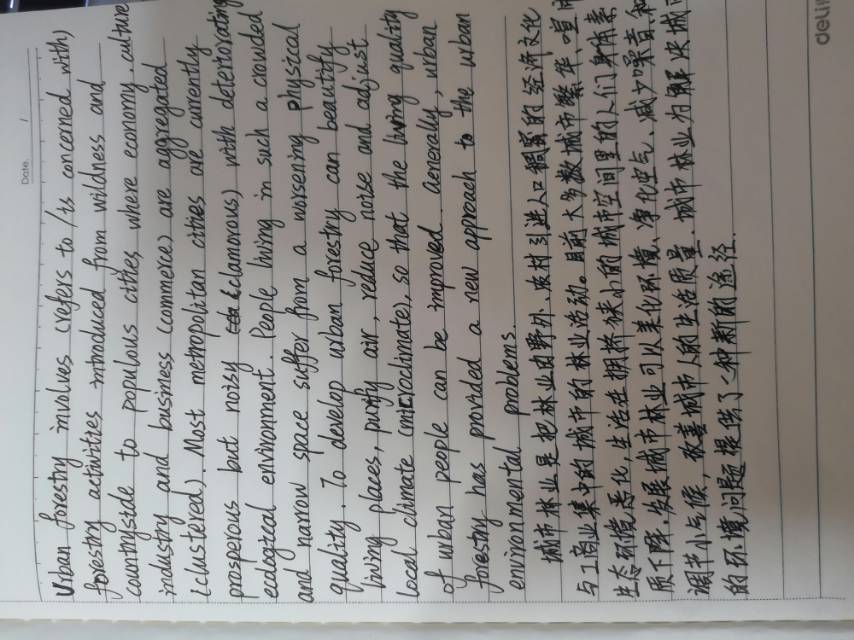 Date. /
Urban forestry involves (refers to / is concerned with)
forestry activities introduced from wildness and
countryside to populous cities, where economy, culture
industry and business (commerce) are aggregated
(clustered). Most metropolitan cities are currently
prosperous but noisy (clamorous) with deteriorating
ecological environment. People living in such a crowded
and narrow space suffer from a worsening physical
quality. To develop urban forestry can beautify
living places, purify air, reduce noise and adjust
local climate (microclimate), so that the living quality
of urban people can be improved. Generally, urban
forestry has provided a new approach to the urban
environmental problems.
城市林业是把林业由野外、农村引进人口稠密的经济文化
与工商业集中的城市的林业活动。目前大多数城市繁华、喧闹
生态环境恶化,生活在拥挤狭小的城市空间里的人们身体素
质下降。发展城市林业可以美化环境、净化空气、减少噪音和
调节小气候,改善城市人的生活质量。城市林业为解决城市
的环境问题提供了一种新的途径.
deli